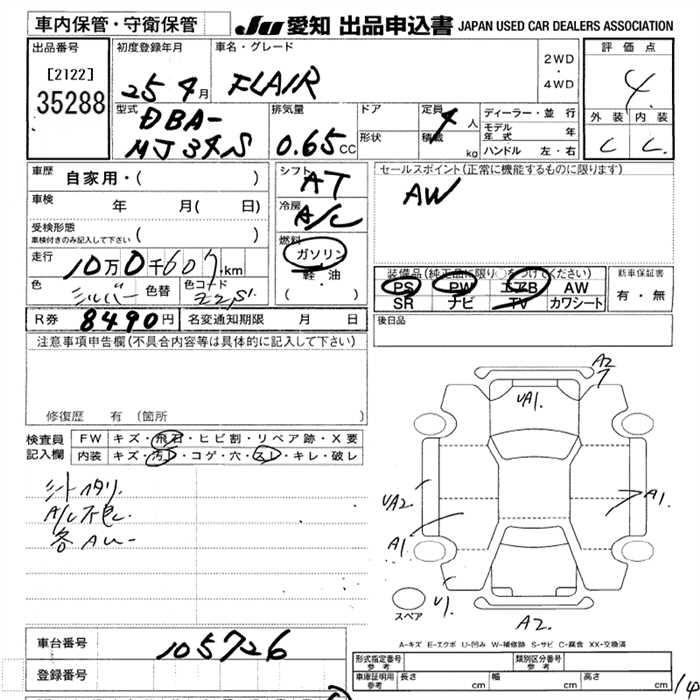 車内保管・守衛保管
JU 愛知 出品申込書 JAPAN USED CAR DEALERS ASSOCIATION
出品番号
[2122]
35288
初度登録年月
25 4月
車名・グレード
FLAIR
2WD
・
4WD
評価点
4
外装 内装
C C
型式
DBA-
MJ34S
排気量
0.65 CC
ドア
形状
定員 4人
積載 kg
ディーラー・並行
モデル年式 年
ハンドル 左・右
車歴 自家用・( )
車検 年 月(日)
受検形態
車検付きのみ記入して下さい ( )
走行 10万0千607km
色 シルバー 色替 色コード
シフト AT
冷房 A/C
燃料
ガソリン
軽・油
( )
セールスポイント(正常に機能するものに限ります)
AW
装備品(純正品に限り○をつけてください)
PS PW エアB AW
SR ナビ TV カワシート
新車保証書
有・無
R券 8490円 名変通知期限 月 日
後日品
注意事項申告欄(不具合内容等は具体的に記入して下さい)
修復歴 有(箇所
検査員記入欄
FW キズ・飛石・ヒビ割・リペア跡・X要
内装 キズ・汚れ・コゲ・穴・スレ・キレ・破レ
シートヘタリ
A/C不良
各AU-
A2
UA1.
UA2
A1.
A1
U1
A2.
スペア
A-キズ E-エクボ U-凹み W-補修跡 S-サビ C-腐食 XX-交換済
車台番号 105726
登録番号
形式指定番号 参考
類別区分番号 参考
車庫証明用 参考 長さ cm 幅 cm 高さ cm